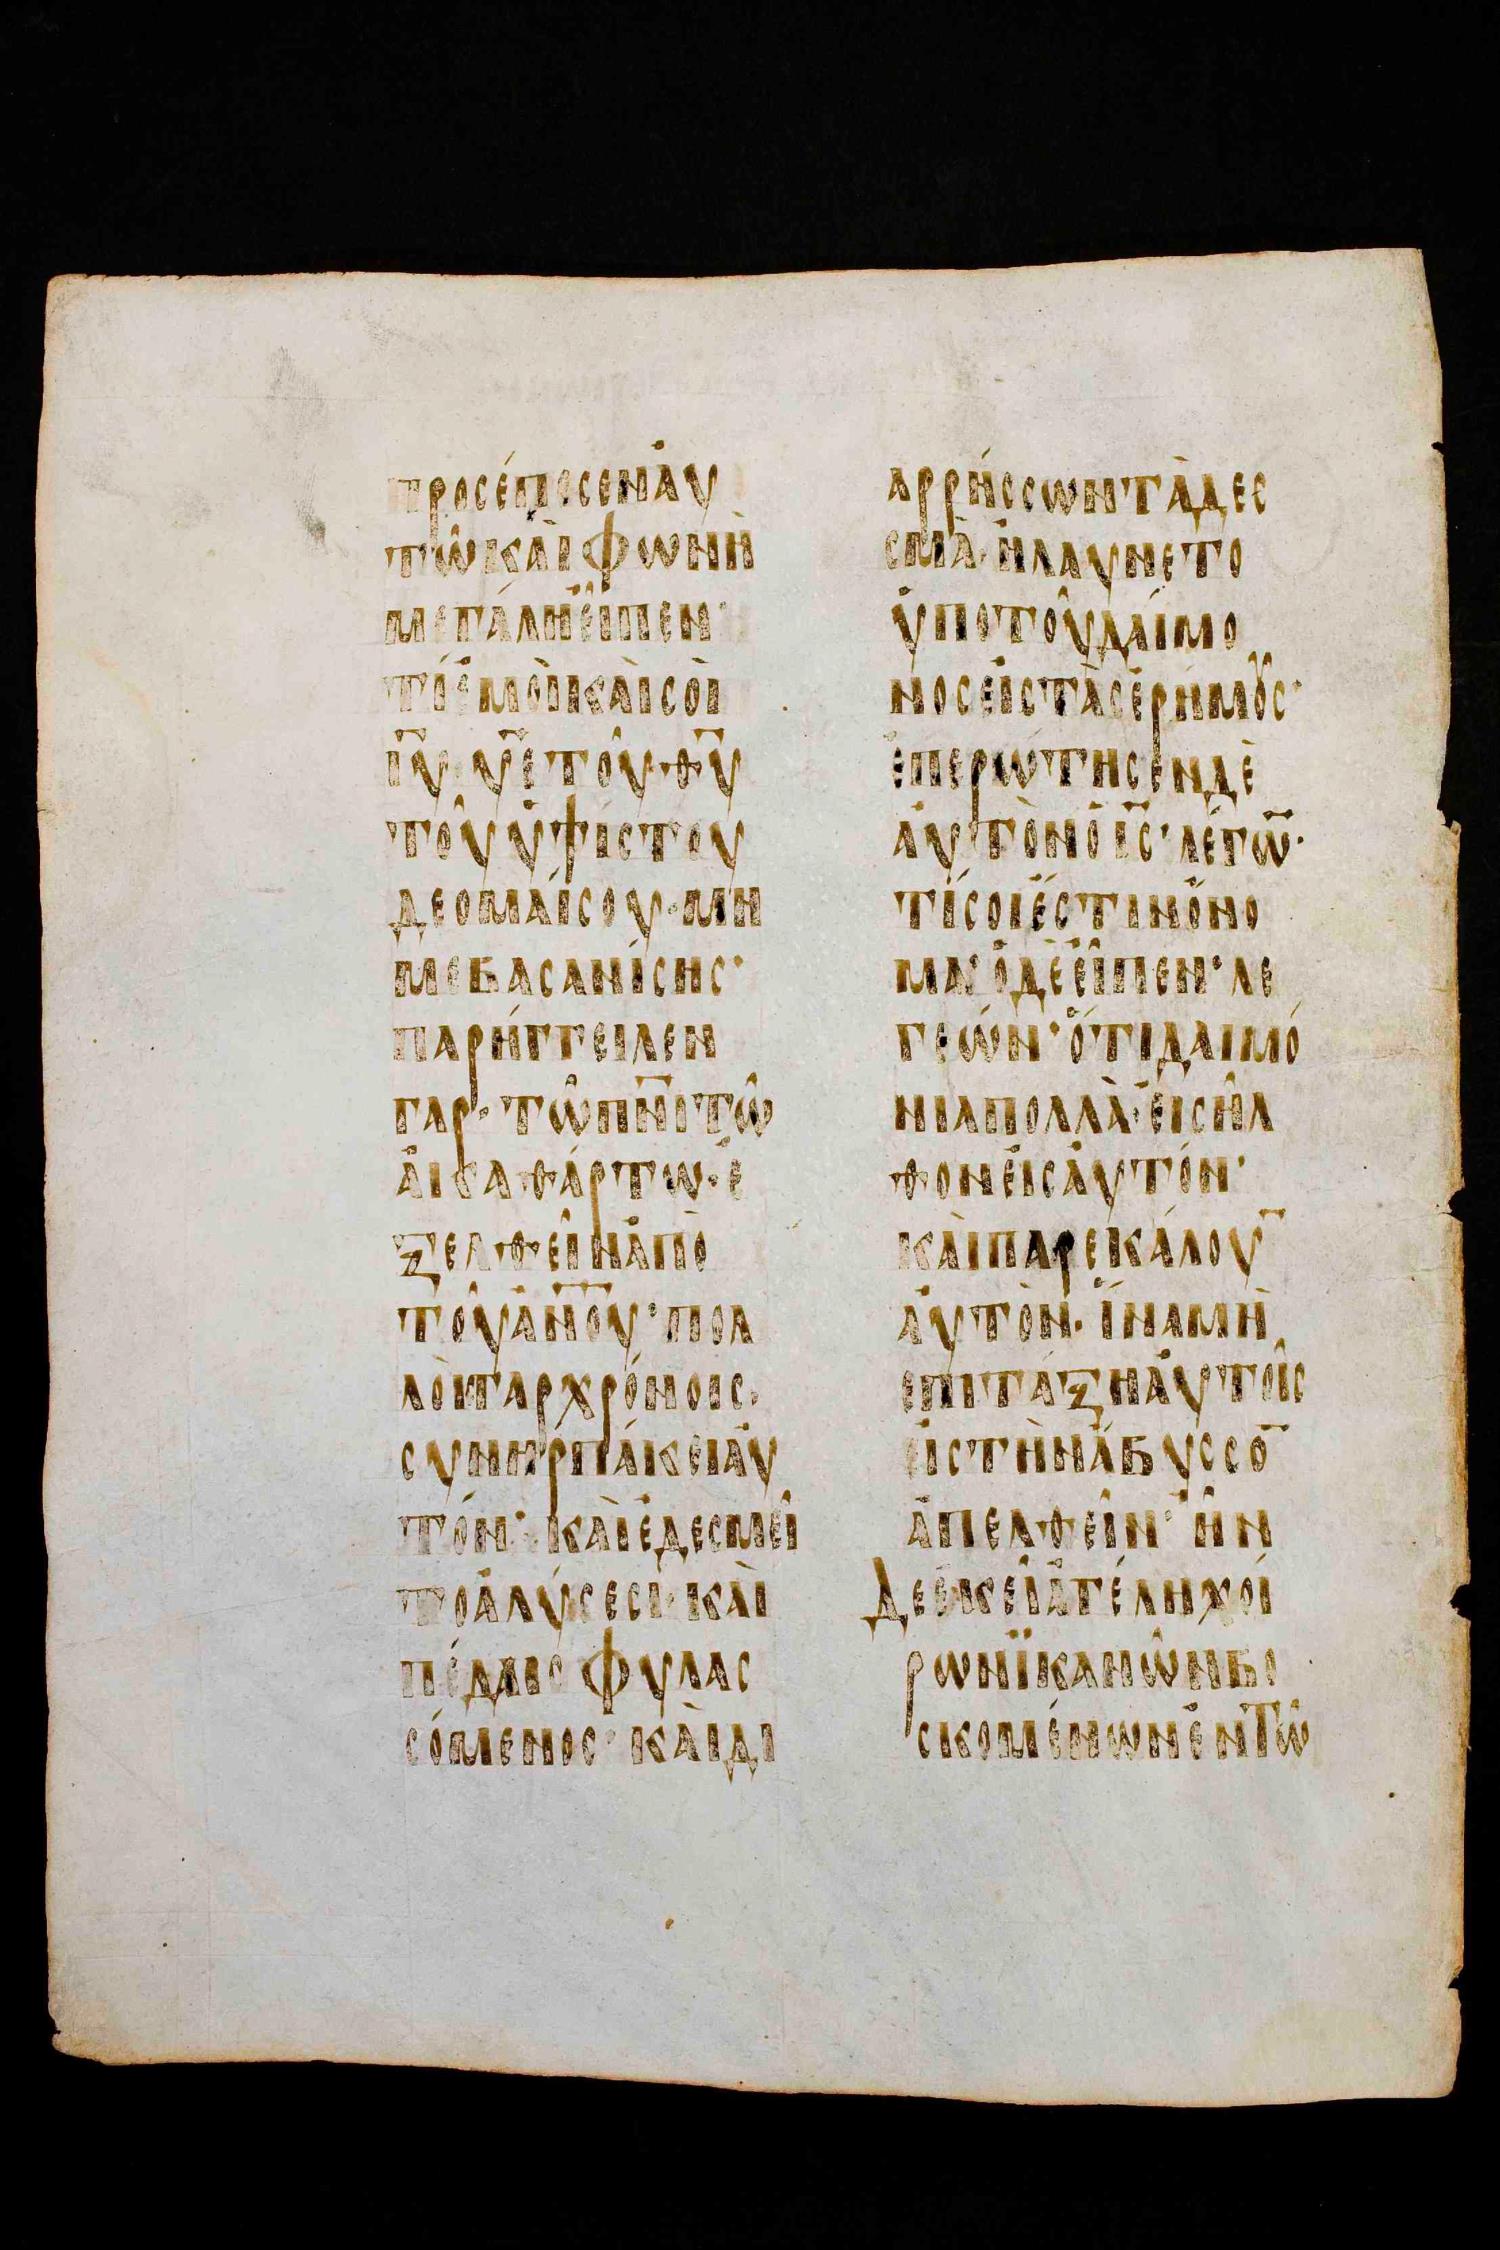 προσέπεσεν ἀυ
τῶ κὰι φωνῆ
μεγάλη ἐῖπεν·
τί ἐμοὶ κὰι σοὶ
ι̅υ̅ υ̅ε̅ τοῦ θ̅υ̅
τοῦ ὑψίστου
δεομαί σου· μη
με βασανίσης·
παρήγγειλεν
γαρ· τῶ π̅ν̅ι̅ τῶ
ἀκαθάρτω· ἐ
ξελθεῖν ἀπὸ
τοῦ ἀ̅ν̅ο̅υ̅· πολ
λοῖς γαρ χρόνοις·
συνηρπάκει ἀυ
τόν· κὰι ἐδεσμεῖ
το ἁλύσεσι· κὰι
πέδαις φυλασ
σόμενος· κὰι δι
αρρήσσων τὰ δεσ
σμὰ· ἠλαυνετο
ὑπο τοῦ δαίμο
νος ἐις τὰς ἐρήμους·
ἐπερώτησεν δὲ
ἀυτὸν ὁ ι̅ς̅· λέγω̅·
τί σοί ἐστιν ὄνο
μα· ὁ δὲ ἐῖπεν· λε
γεών· ὅτι δαιμό
νια πολλὰ· ἐισῆλ
θον ἐις ἀυτόν·
κὰι παρεκάλου̅
ἀυτὸν· ἵνα μὴ
επιτάξη ἀυτοῖς
ἐις τὴν ἄβυσσο̅
ἀπελθεῖν· ἦν
δε ἐκεῖ ἀγέλη χοί
ρων ϊκανῶν βο
σκομένων ἐν τῶ